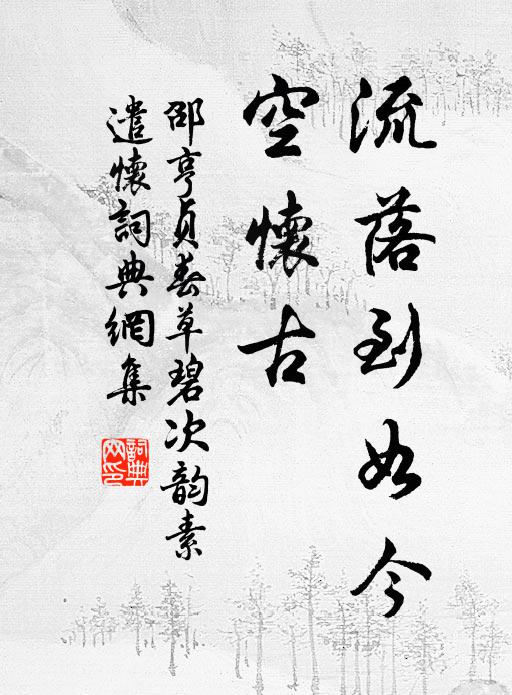 流落到如今
空懷古
邵亨貞春草碧次韵素
遣懷詞典網集
詞典网印